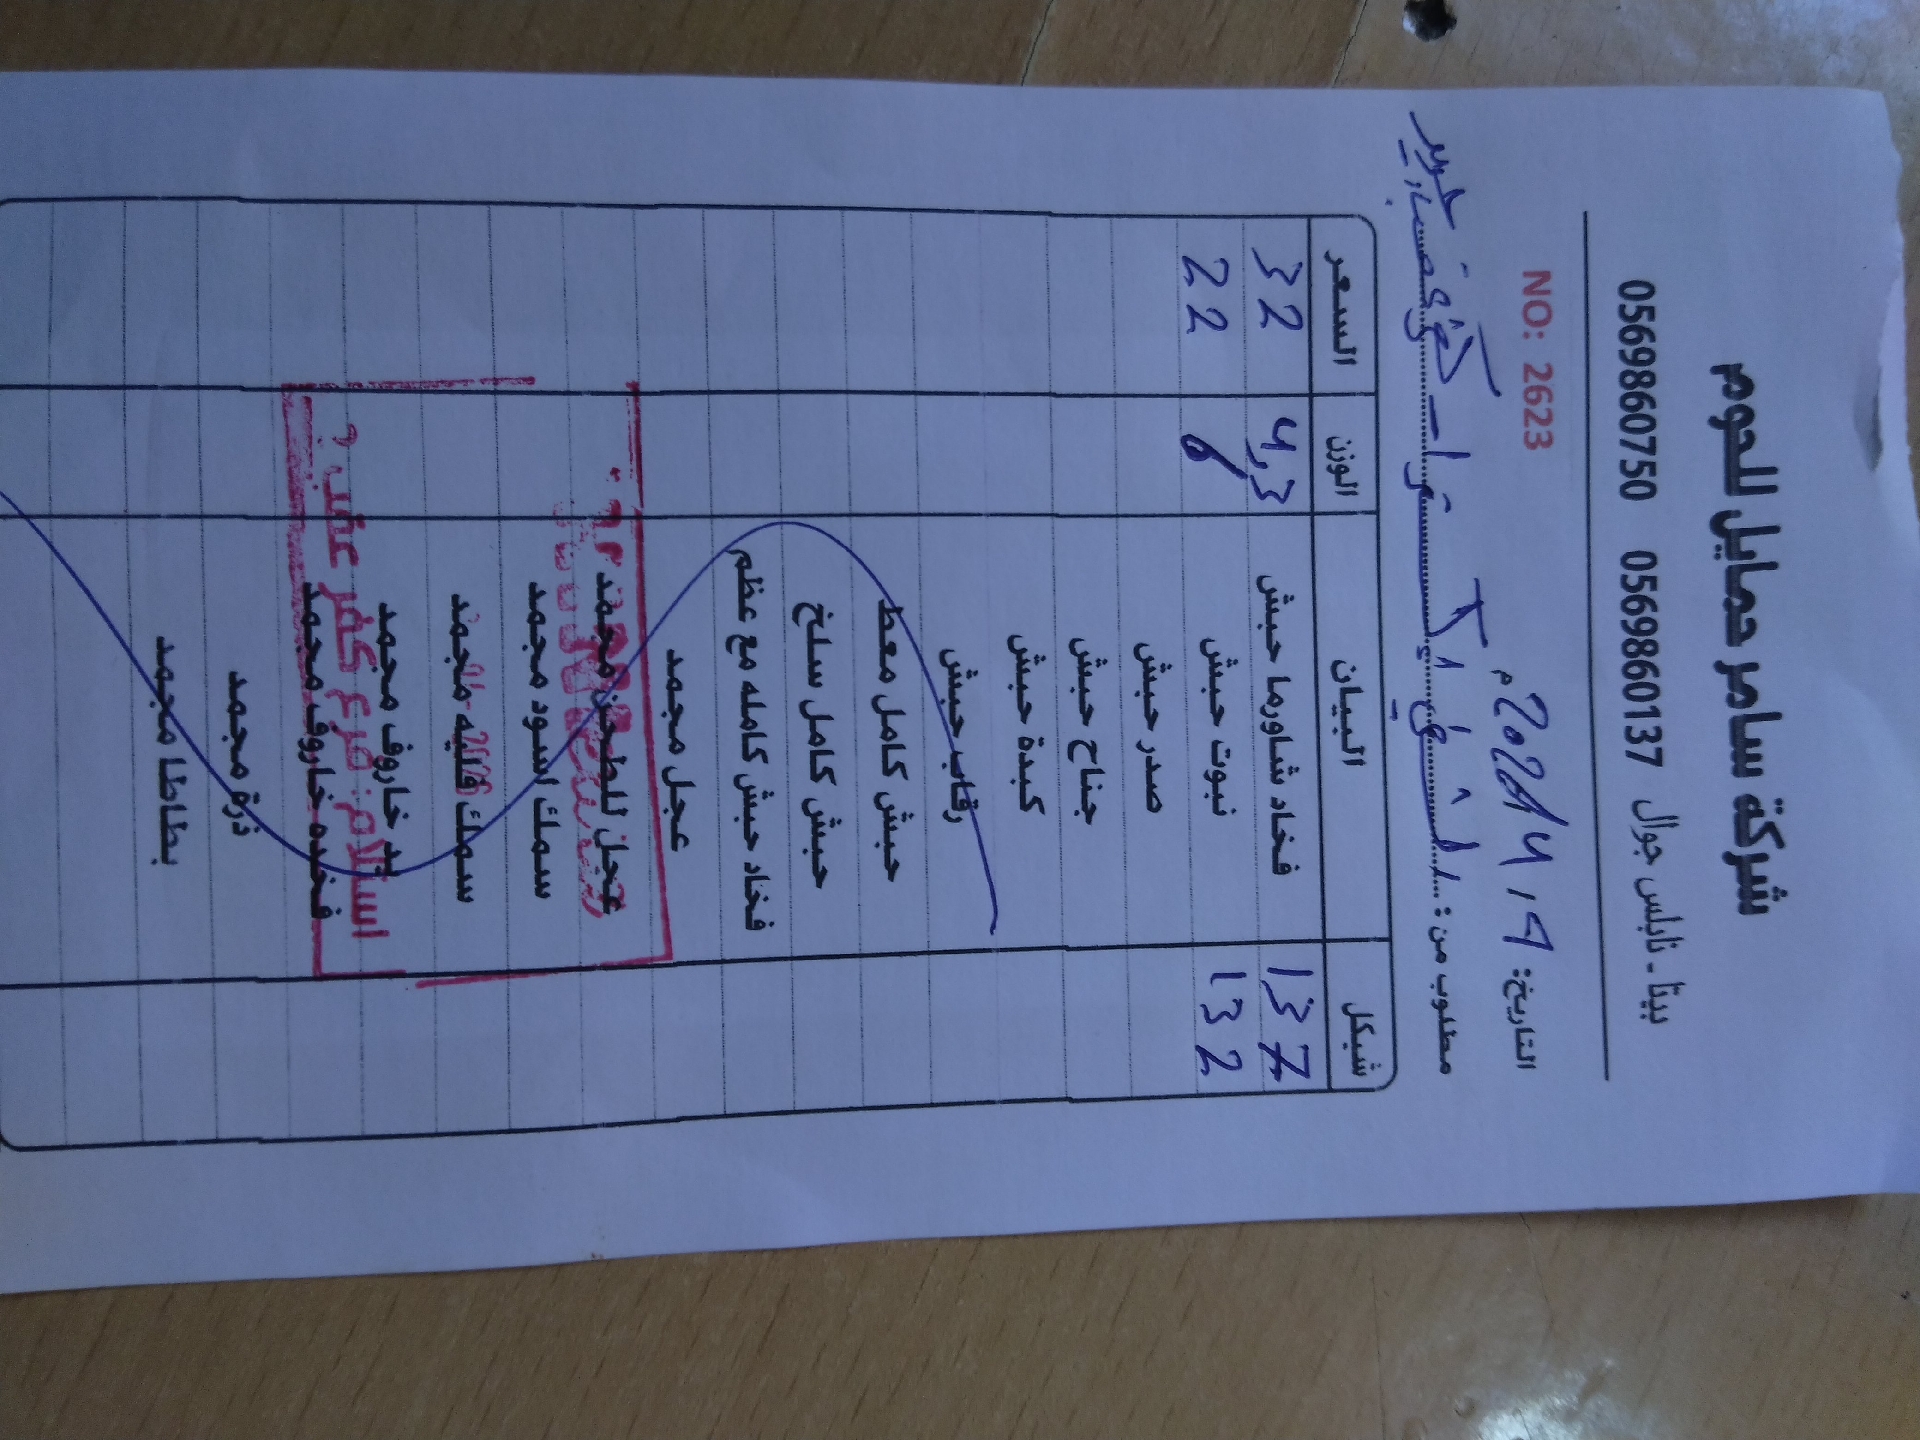 شركة سامر حمايل للحوم
بيتا - نابلس جوال 0569860137 0569860750
التاريخ: NO: 2623
مطلوب من:
شيكل البيان الوزن السعر
137 فخاد شاورما حبش 4,3 32
132 نبوت حبش 6 22
صدر حبش
جناح حبش
كبدة حبش
رقاب حبش
حبش كامل معط
حبش كامل سلخ
فخاد حبش كامله مع عظم
عجل مجمد
عجل للطحن مجمد
سمك اسود مجمد
سمك فليه مجمد
يد خاروف مجمد
فخده خاروف مجمد
ذرة مجمد
بطاطا مجمد
استلام: فرع كفر عقب